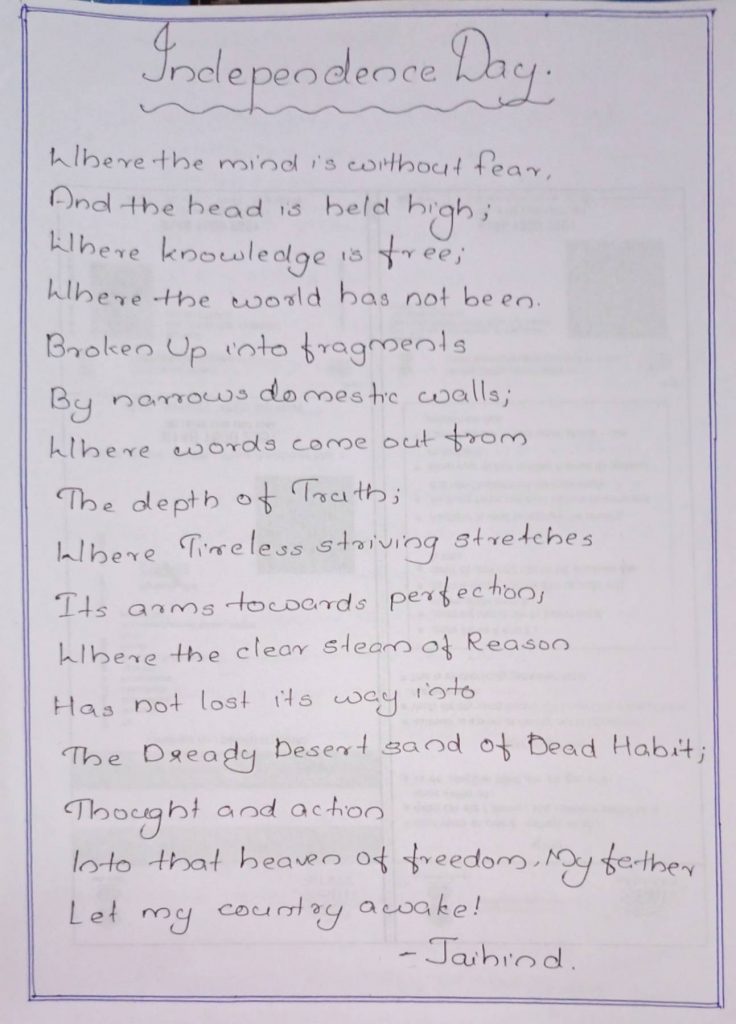 Independence Day.
Where the mind is without fear,
And the head is held high;
Where knowledge is free;
Where the world has not been.
Broken Up into fragments
By narrows domestic walls;
Where words come out from
The depth of Truth;
Where Tireless striving stretches
Its arms towards perfection;
Where the clear steam of Reason
Has not lost its way into
The Dready Desert sand of Dead Habit;
Thought and action
Into that heaven of freedom, My father
Let my country awake!
- Jaihind.